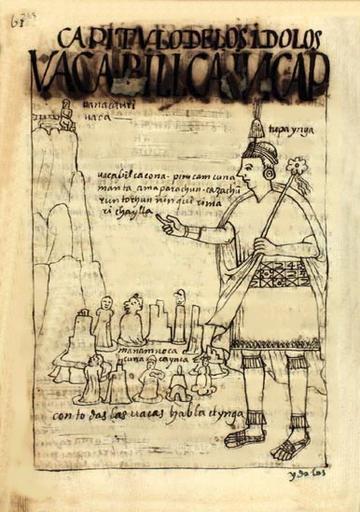 CAPITVLO DE LOS IDOLOS
VACA BILLCA INCAP
uana cauri
uaca
topa ynga
uaca bilcacona · pim camcuna
manta ama parachun · cazachu
runtochun ninqui rima
ri chaylla
manam noca
cuna ca ynca
con todas las uacas habla el ynga
ydolos